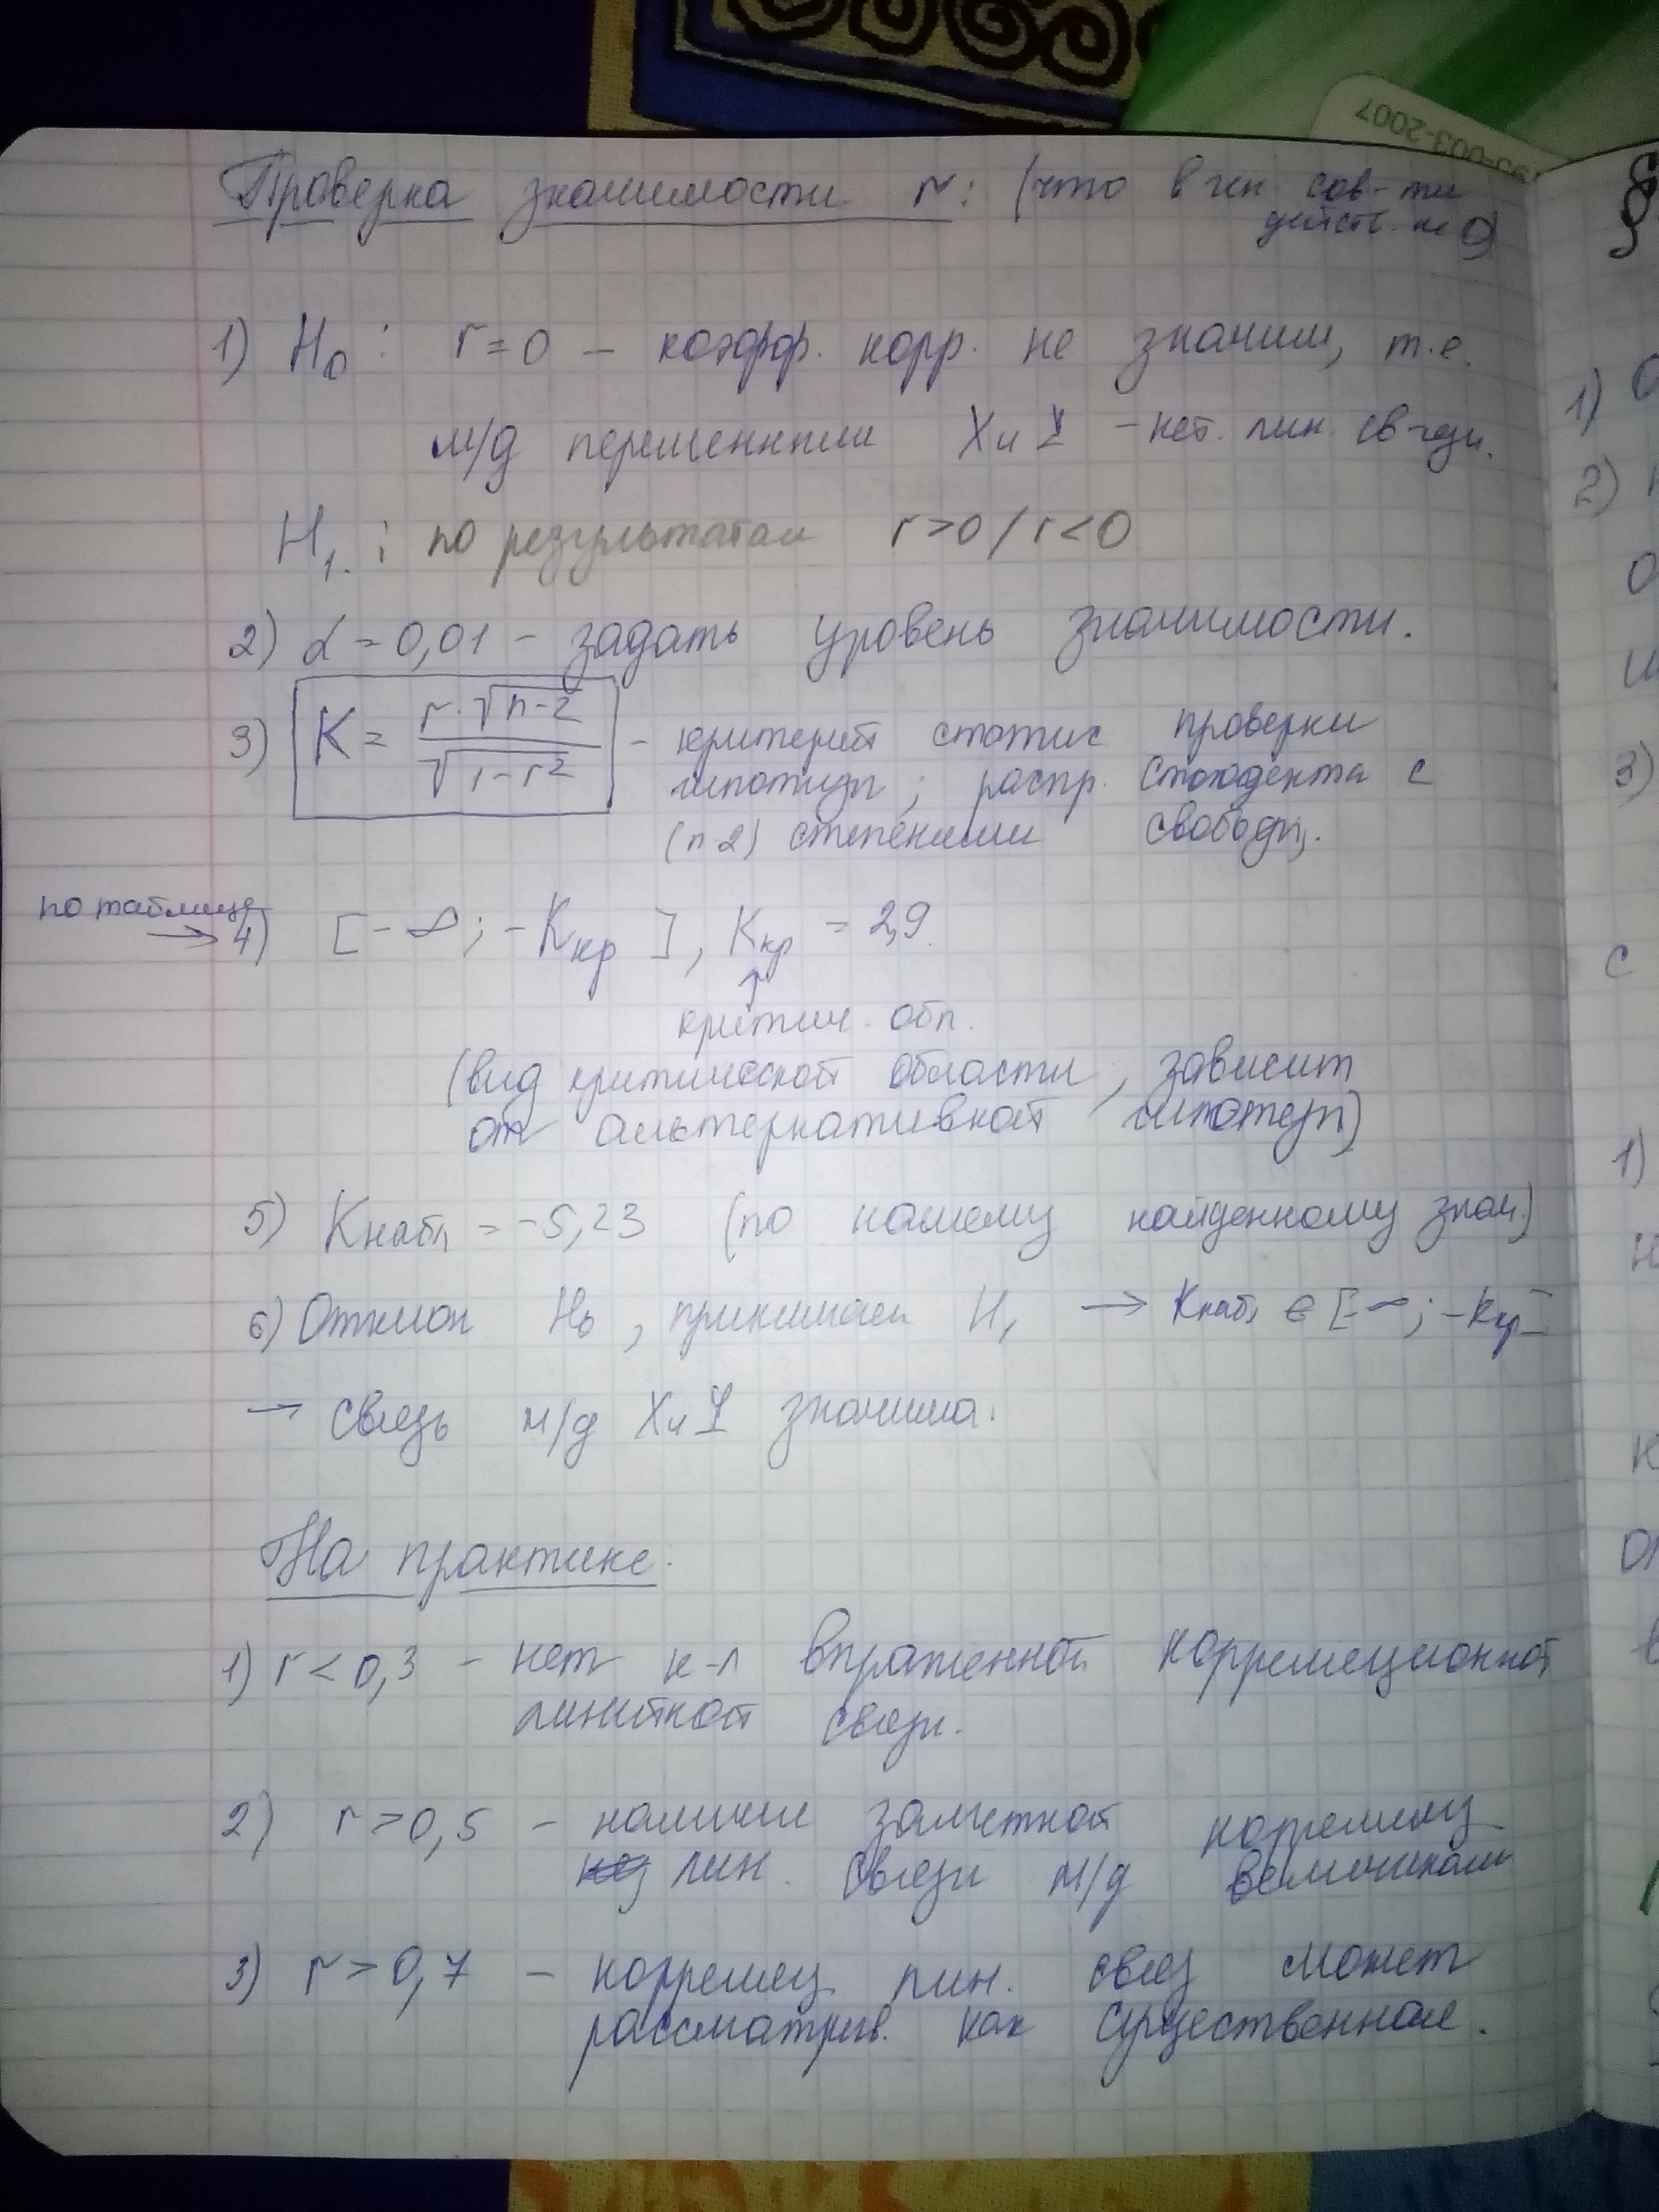 Проверка значимости r: (что в ген. сов-ти
действ. не 0)
1) H₀: r = 0 – коэфф. корр. не значим, т.е.
м/д переменными X и Y – нет лин. св-язи.
H₁: по результатам r>0 / r<0
2) α = 0,01 – задать уровень значимости.
3) K = r·√(n-2) / √(1-r²) – критерий статис проверки
гипотезы; распр. Стьюдента с
(n-2) степенями свободы.
по таблице
→ 4) [-∞; -Kкр], Kкр = 2,9
↑
критич. обл.
(вид критической области, зависит
от альтернативной гипотезы)
5) Kнабл = -5,23 (по нашему найденному знач.)
6) Отклон H₀, принимаем H₁ → Kнабл ∈ [-∞; -Kкр]
→ связь м/д X и Y значима.
На практике.
1) r < 0,3 – нет к-л выраженной корреляционной
линейной связи.
2) r > 0,5 – наличие заметной корреляц
лин. связи м/д величинами
3) r > 0,7 – корреляц. лин. связ может
рассматрив. как существенная.
93-003-2007
§
1)
2)
3)
с
1)